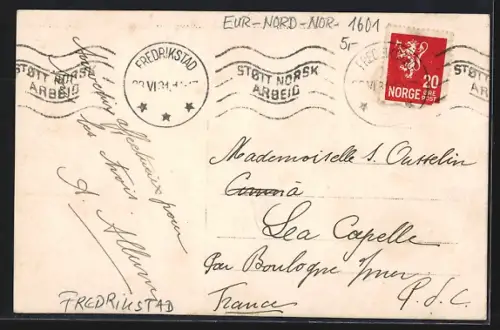 EUR-NORD-NOR- 1601
5,-
FREDRIKSTAD
VI 31
STØTT NORSK
ARBEID
STØTT NORSK
ARBEID
STØTT NORSK
ARBEID
20
NORGE ØRE
POST
affectueux pour
les trois
A.
FREDRIKSTAD
Mademoiselle S.
Lea Capelle
par Boulogne s/mer
France P.d.C.